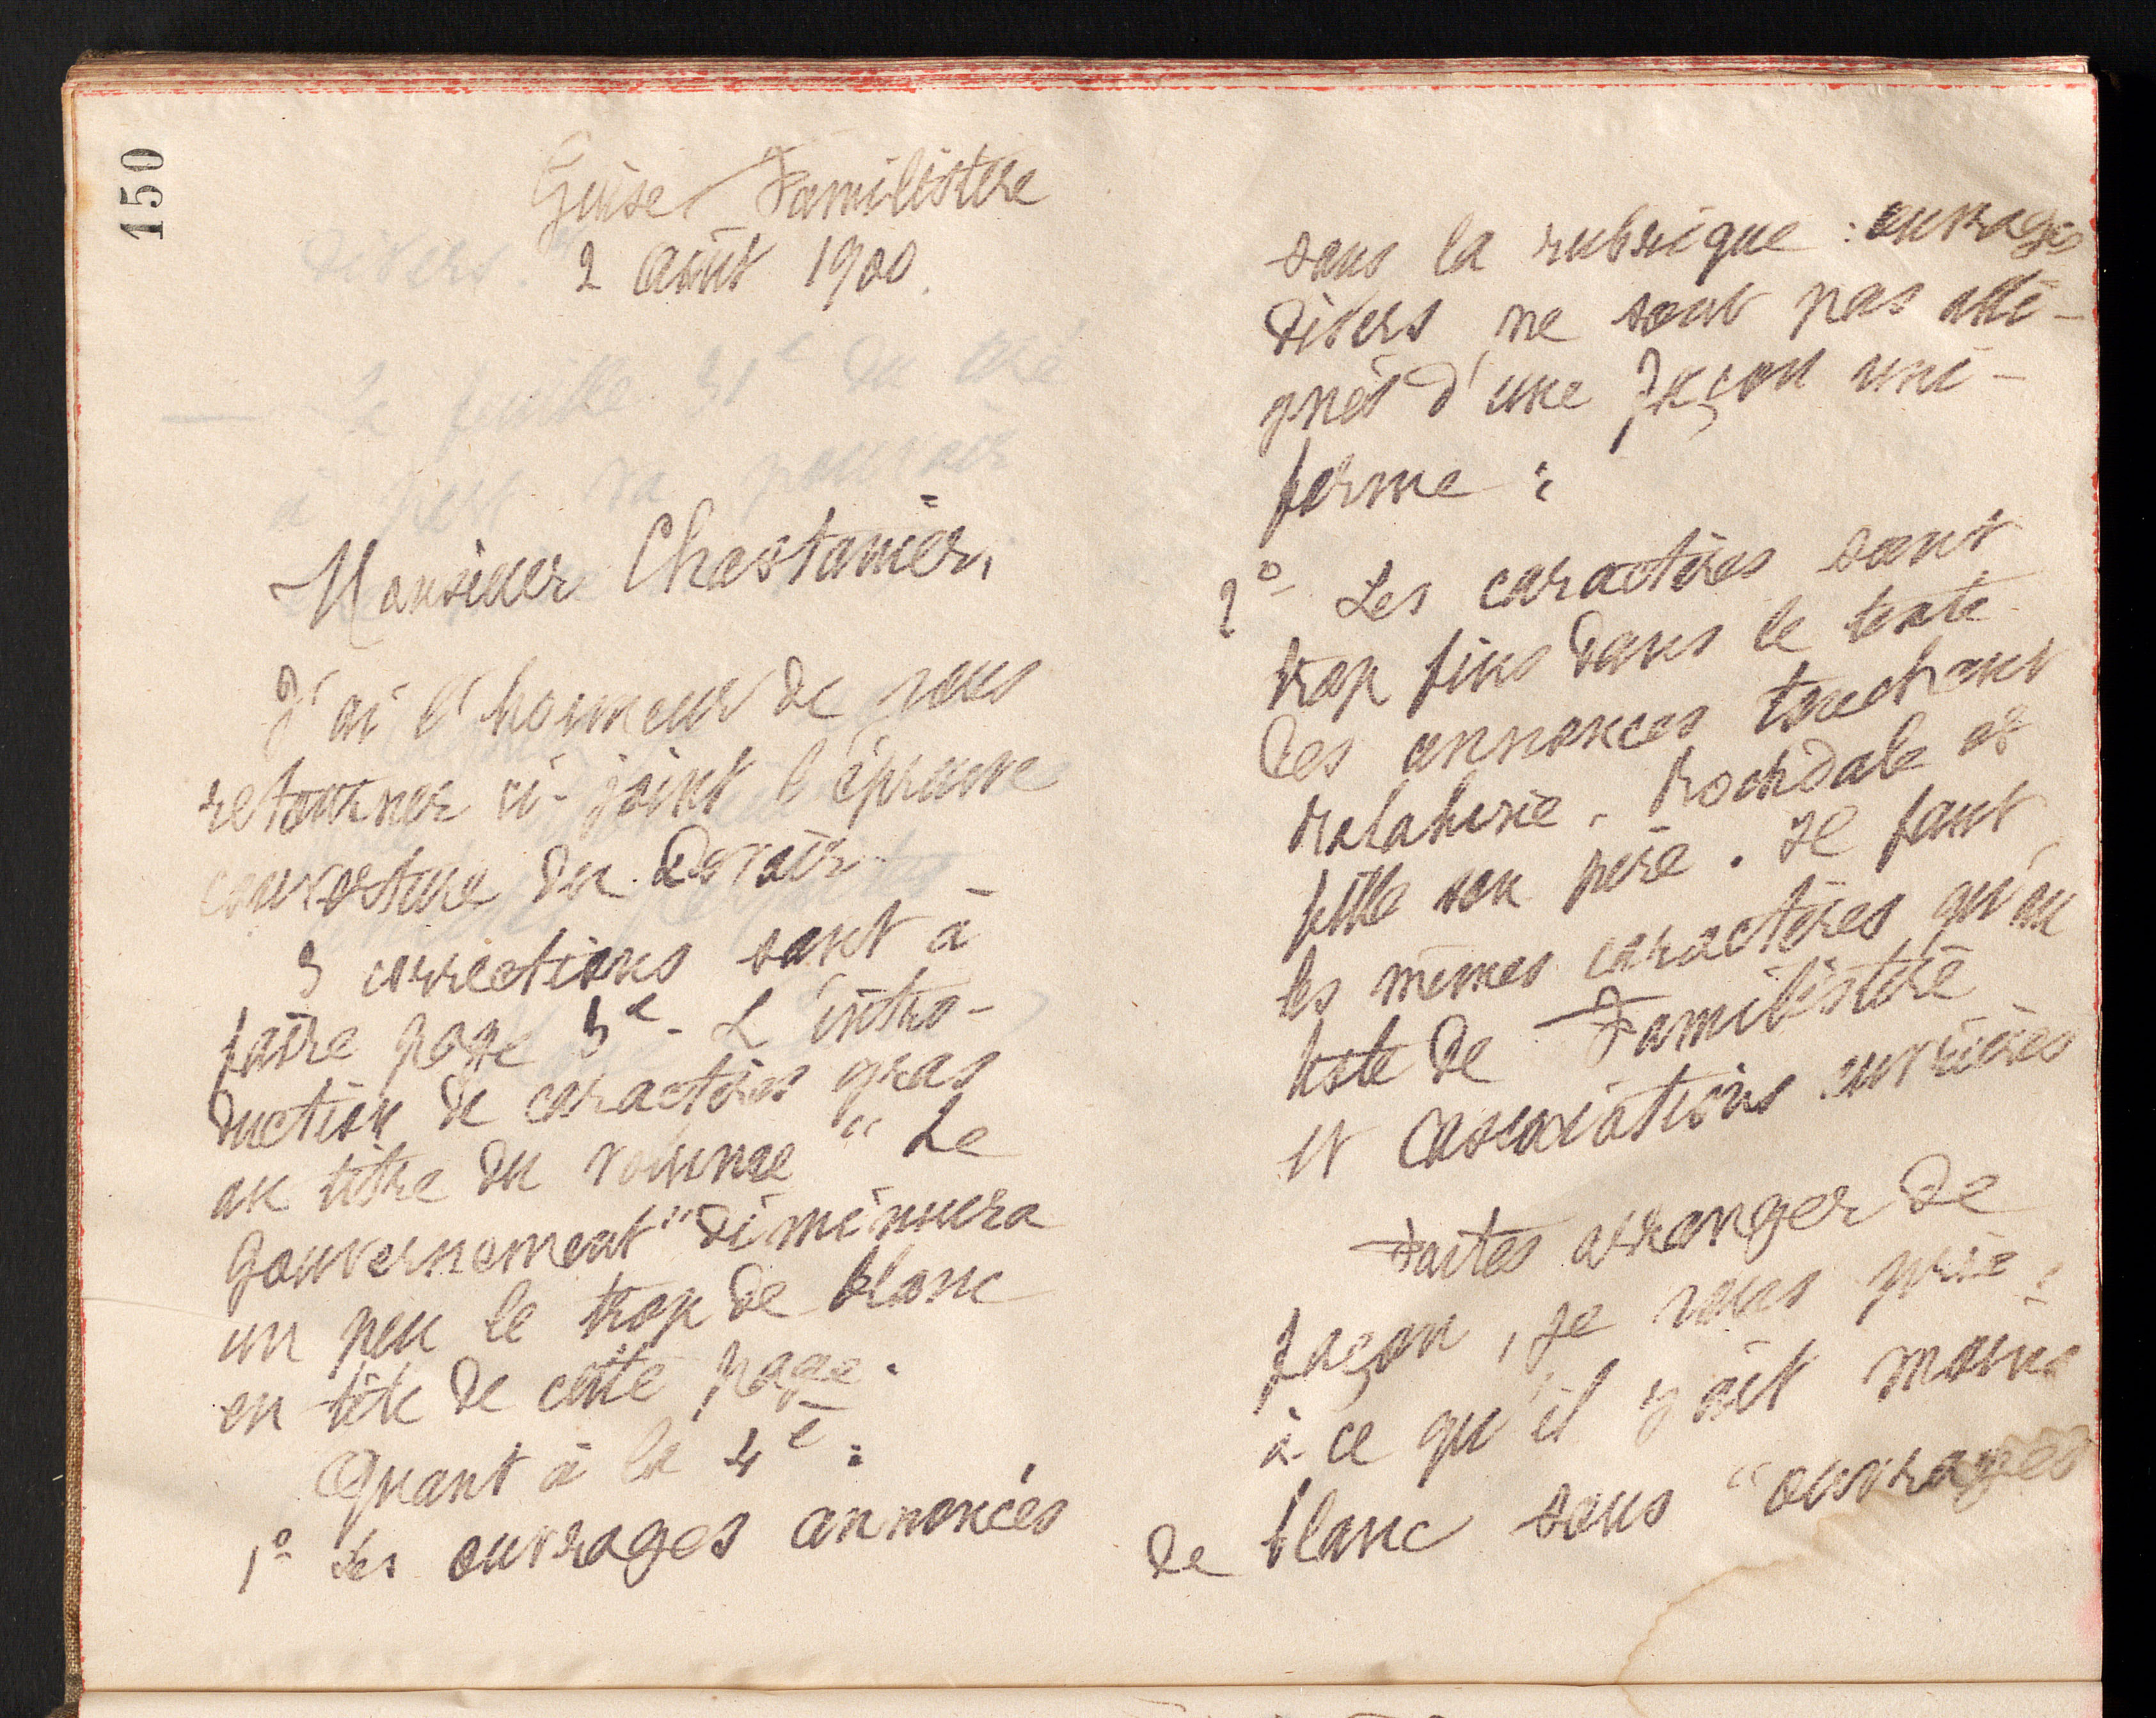 150
Guise Familistère
2 août 1900.
Monsieur Chastanier,
J'ai l'honneur de vous
retourner ci-joint l'épreuve
couverture du Devoir.
3 corrections sont à
faire page 3e. L'intro-
duction de caractères gras
au titre du volume "Le
Gouvernement" diminuera
un peu le trop de blanc
en tête de cette page.
Quant à la 4e :
1o Les ouvrages annoncés
sous la rubrique : ouvrages
divers ne sont pas ali-
gnés d'une façon uni-
forme ;
2o Les caractères sont
trop fins dans le texte
des annonces touchant
Malahine, Rochdale et
fille son père. Il faut
les mêmes caractères qu'au
texte de Familistère
et Associations ouvrières
Faites arranger de
façon, je vous prie,
à ce qu'il y ait moins
de blanc sous "ouvrages